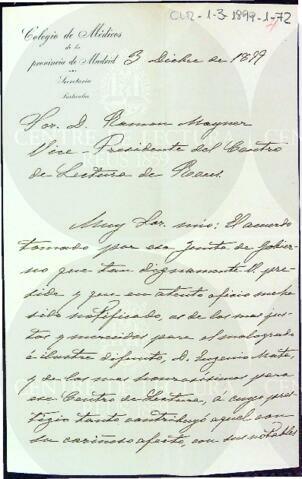 CLR-1-3-1899-1-72
Colegio de Médicos
de la
provincia de Madrid
Secretaría
Particular
3 Dicbre de 1899
Sor. D. Ramon Mayner
Vice Presidente del Centro
de Lectura de Reus.
Muy Sor. mio: El acuerdo
tomado por esa Junta de Gobier-
no que tan dignamente V. pre-
side y que en atento oficio me ha
sido notificado, es de los mas jus-
tos y merecidos para el malogrado
é ilustre difunto, D. Eugenio Mata,
y de los mas para
ese Centro de Lectura, a cuyo pres-
tigio tanto contribuyó aquel con
su cariñoso afecto, con sus notables
CENTRE DE LECTURA
REUS 1859